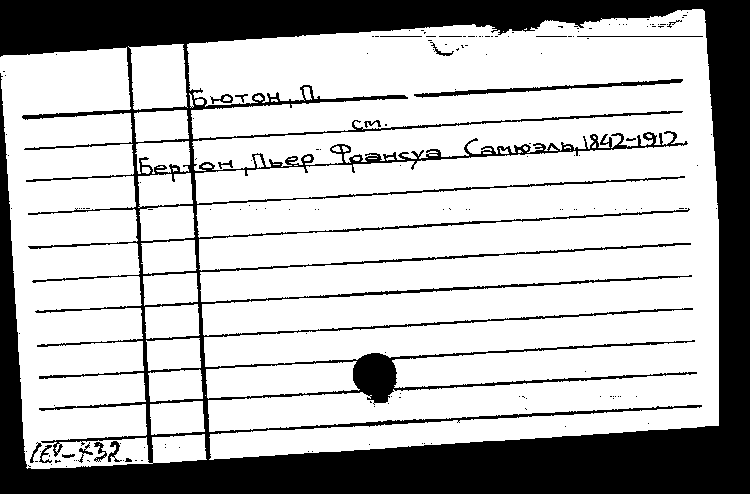 Бютон, П.
см.
Бертон, Пьер Франсуа Самюэль, 1842-1912.